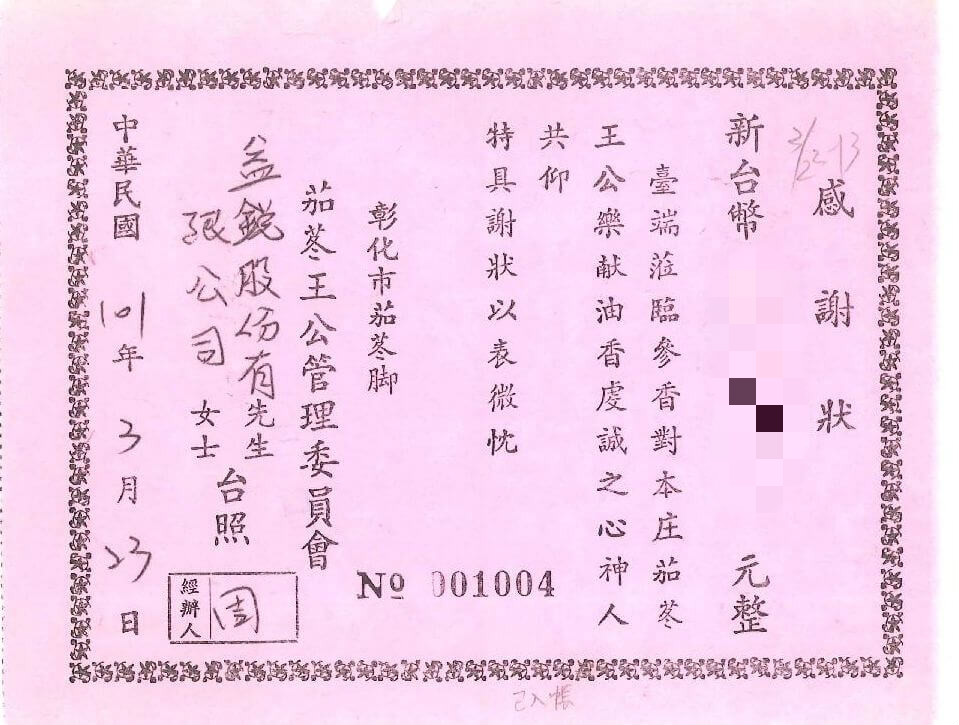 感謝狀
新台幣 元整
臺端蒞臨參香對本庄茄苳
王公樂献油香虔誠之心神人
共仰
特具謝狀以表微忱
彰化市茄苳脚
茄苳王公管理委員會
益銳股份有限公司 先生女士 台照
中華民國101年3月23日
№ 001004
經辦人 周
已入帳